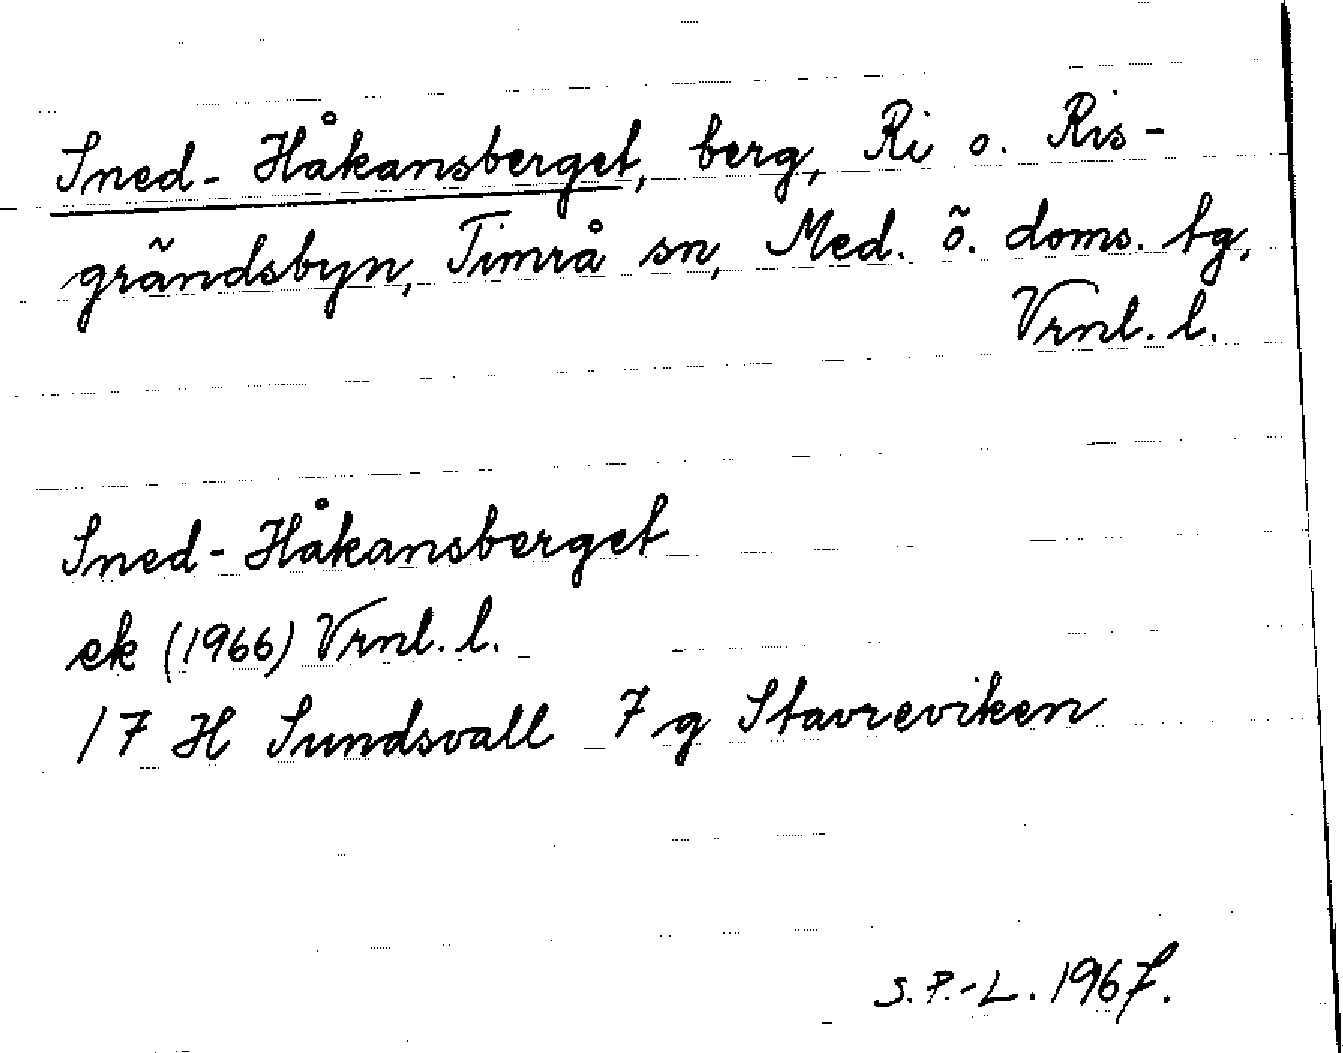 Sned-Håkansberget, berg, Ri o. Ris-
grändsbyn, Timrå sn, Med. ö. doms. tg,
Vrnl. l.
Sned-Håkansberget
ek (1966) Vrnl. l.
17 H Sundsvall 7 g Stavreviken
S. P.-L. 1967.